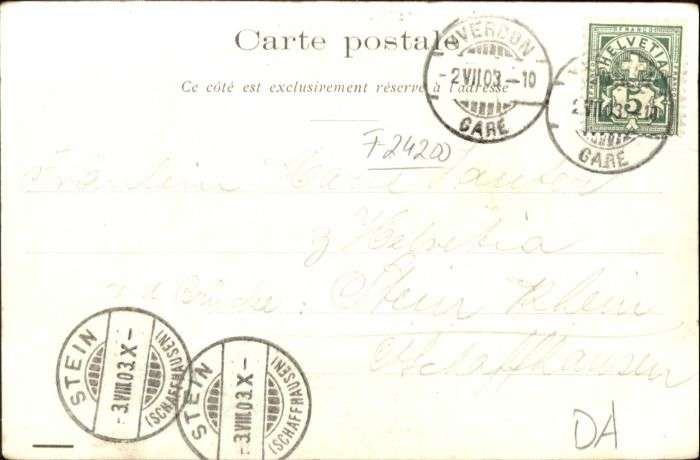 Carte postale
Ce côté est exclusivement réservé à l'adresse
YVERDON
-2.VII.03.-10
GARE
HELVETIA
FRANCO
5
2.VII.03.-10
GARE
F 24200
Fräulein
z Helvetia
Stein Rhein
Schaffhausen
STEIN
-3.VIII.03.X-
(SCHAFFHAUSEN)
STEIN
-3.VIII.03.X-
(SCHAFFHAUSEN)
DA